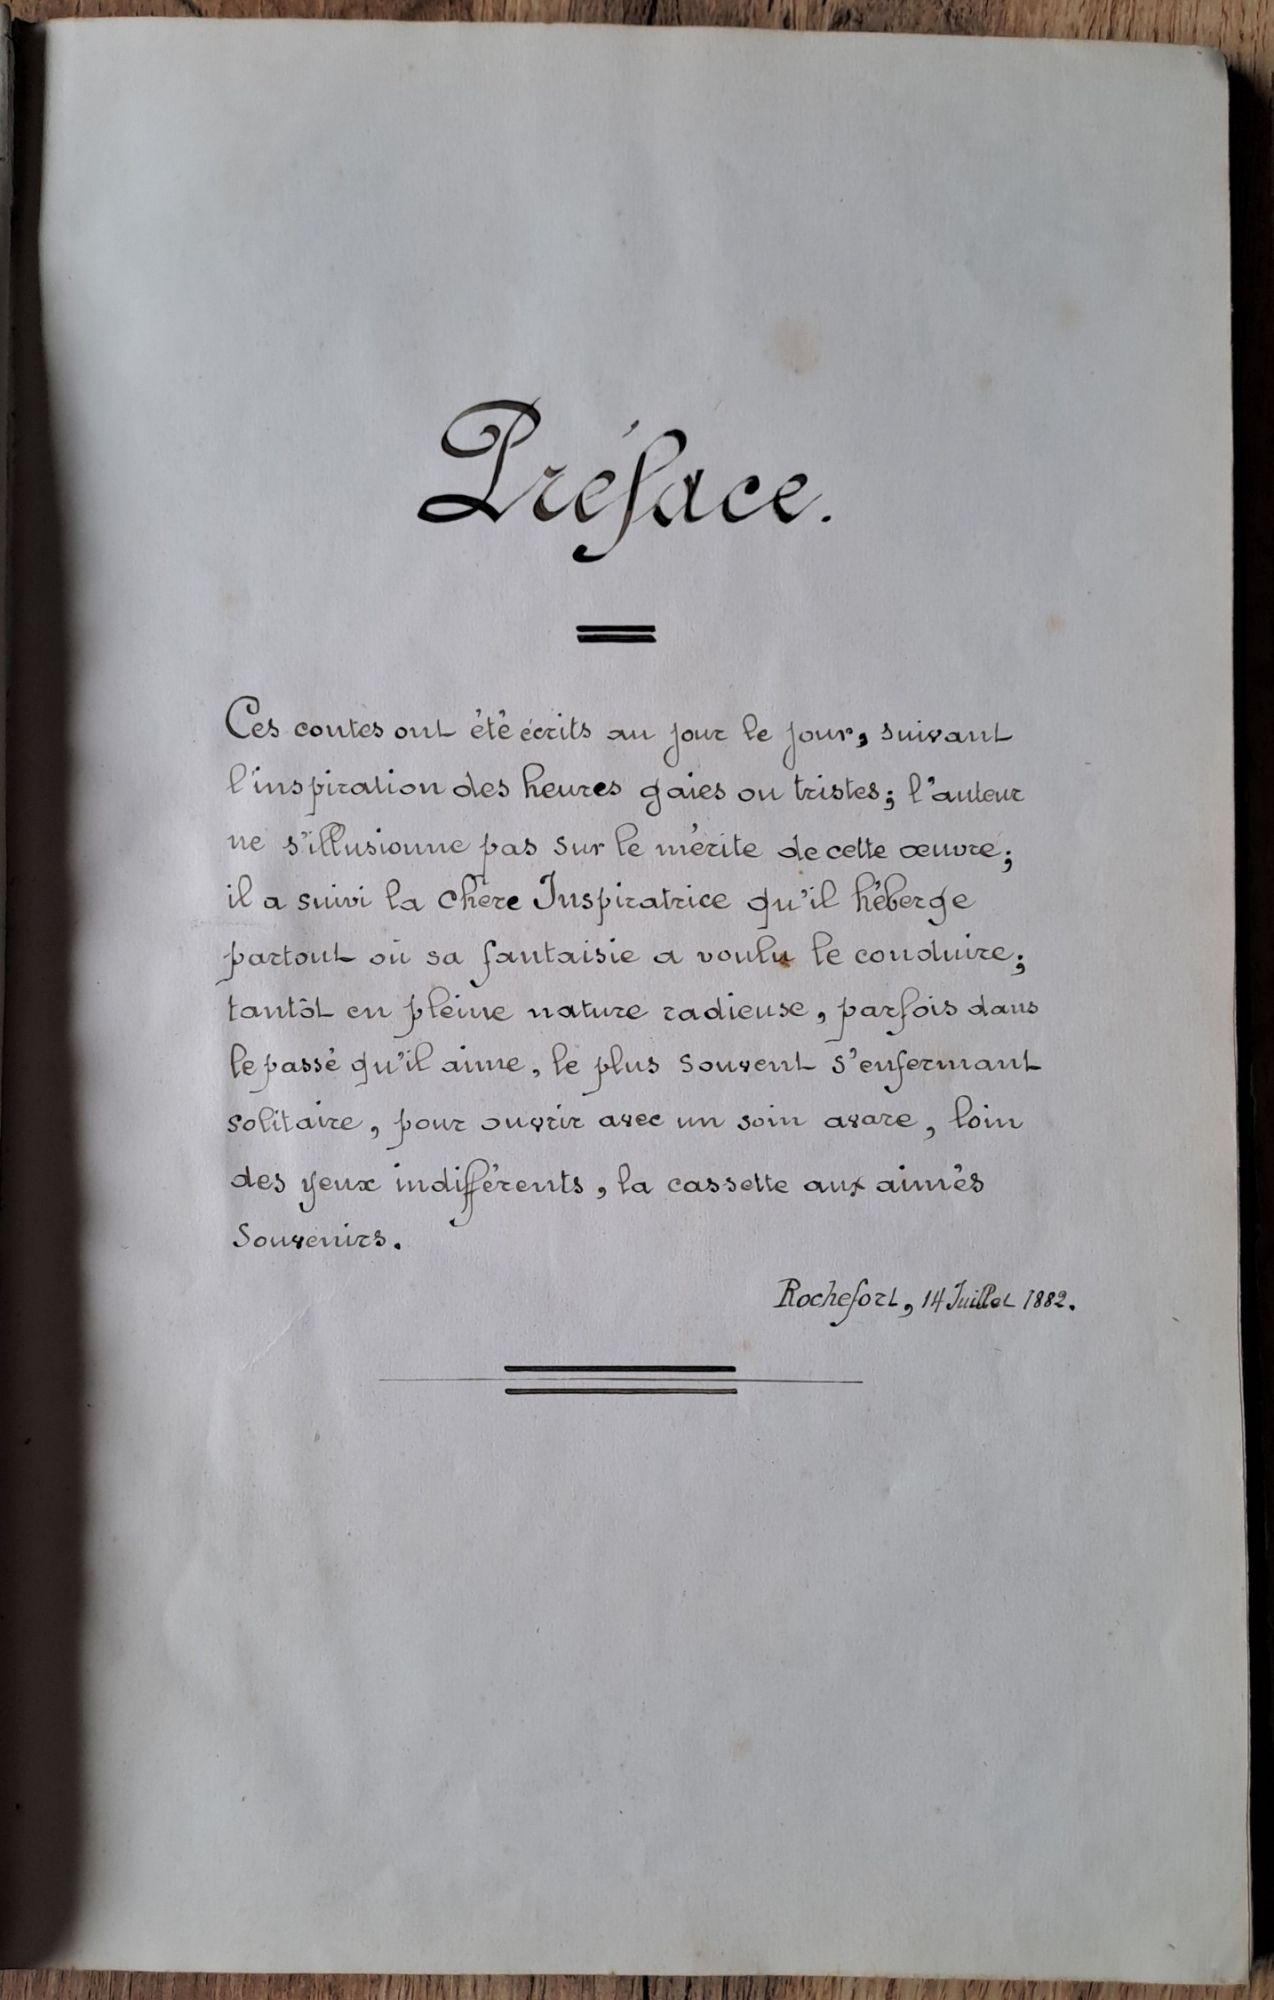 Préface.
Ces contes ont été écrits au jour le jour, suivant
l'inspiration des heures gaies ou tristes; l'auteur
ne s'illusionne pas sur le mérite de cette œuvre;
il a suivi la chère Inspiratrice qu'il héberge
partout où sa fantaisie a voulu le conduire;
tantôt en pleine nature radieuse, parfois dans
le passé qu'il aime, le plus souvent s'enfermant
solitaire, pour ouvrir avec un soin avare, loin
des yeux indifférents, la cassette aux aimés
Souvenirs.
Rochefort, 14 Juillet 1882.